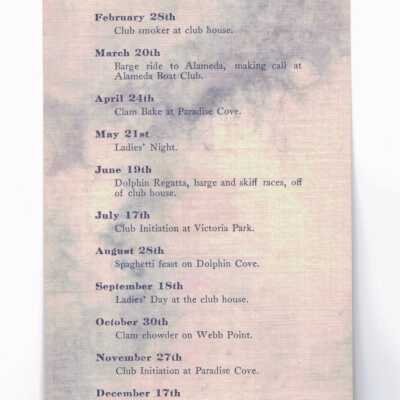 February 28th
Club smoker at club house.
March 20th
Barge ride to Alameda, making call at
Alameda Boat Club.
April 24th
Clam Bake at Paradise Cove.
May 21st
Ladies' Night.
June 19th
Dolphin Regatta, barge and skiff races, off
of club house.
July 17th
Club Initiation at Victoria Park.
August 28th
Spaghetti feast on Dolphin Cove.
September 18th
Ladies' Day at the club house.
October 30th
Clam chowder on Webb Point.
November 27th
Club Initiation at Paradise Cove.
December 17th